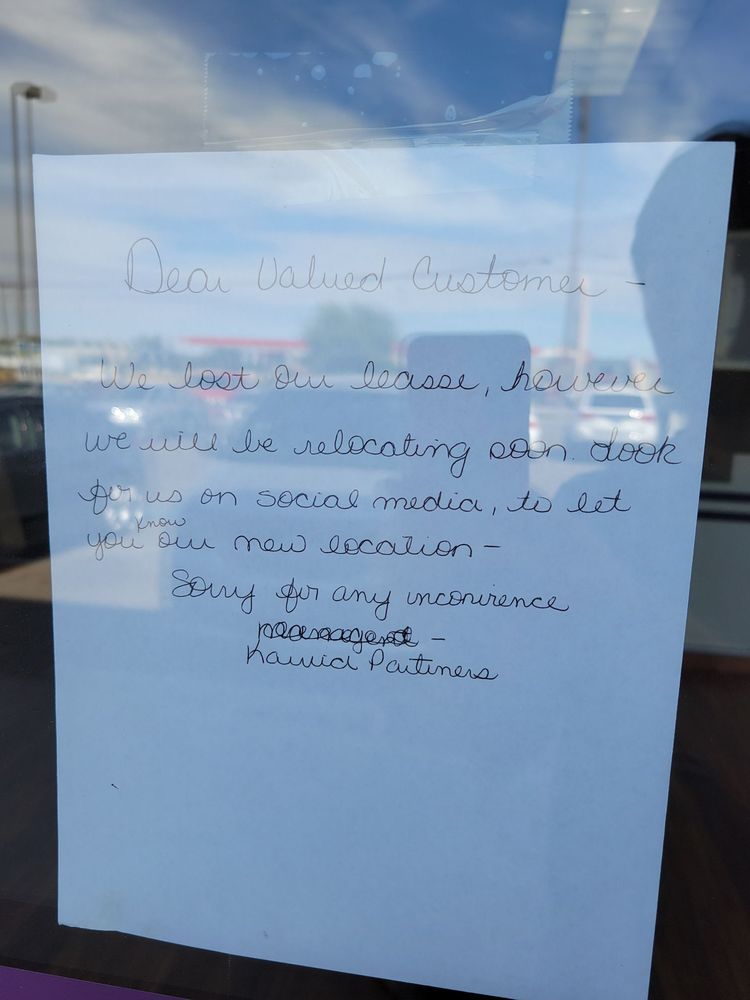 Dear Valued Customer -
We lost our leasse, however
we will be relocating soon. Look
for us on social media, to let
you know our new location -
Sorry for any inconvirence
managent -
Partiners